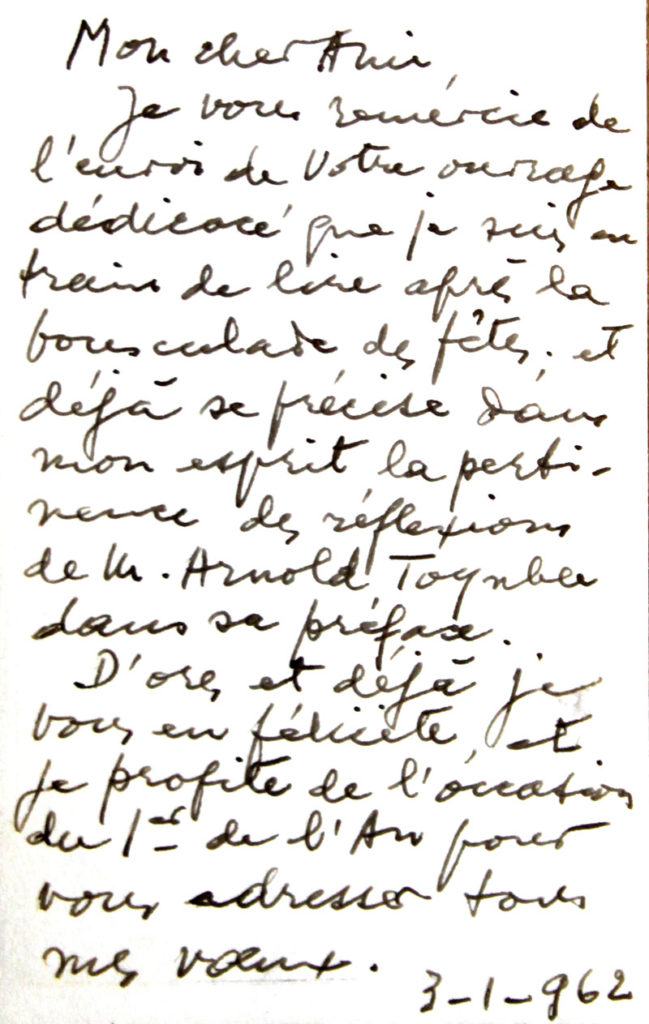 Mon cher Ami,
Je vous remércie de
l'envoi de votre ouvrage
dédicacé que je suis en
train de lire après la
bousculade des fêtes, et
déjà se précise dans
mon esprit la perti-
nence des réflexions
de M. Arnold Toynbee
dans sa préface.
D'ores et déjà je
vous en félicite, et
je profite de l'occasion
du 1er de l'An pour
vous adresser tous
mes vœux.
3-1-962